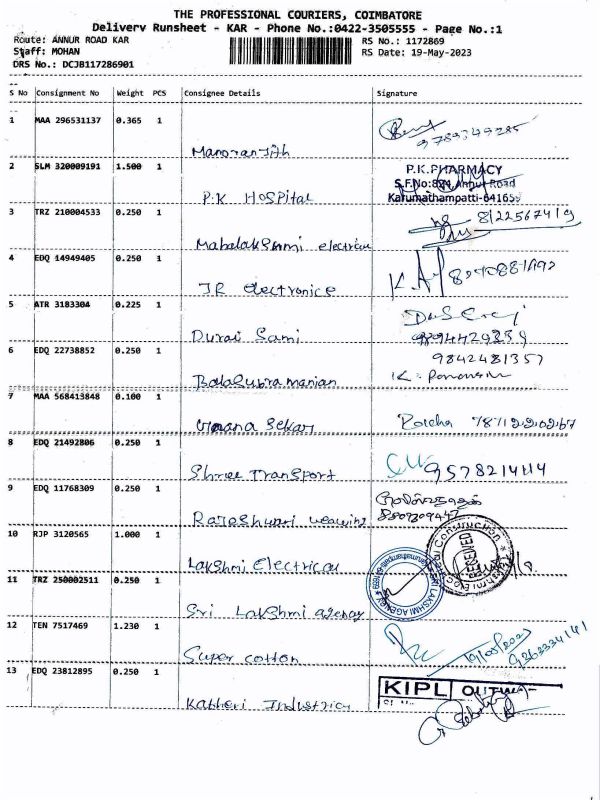 THE PROFESSIONAL COURIERS, COIMBATORE
Delivery Runsheet - KAR - Phone No.:0422-3505555 - Page No.:1
Route: ANNUR ROAD KAR RS No.: 1172869
Staff: MOHAN RS Date: 19-May-2023
DRS No.: DCJB117286901
S No Consignment No Weight PCS Consignee Details Signature
1 MAA 296531137 0.365 1
9789349285
Manoranjith
2 SLM 320009191 1.500 1 P.K.PHARMACY
S.F.No:824, Annur Road
P.K Hospital Karumathampatti-641659
3 TRZ 210004533 0.250 1
Mahalakshmi electrical
4 EDQ 14949405 0.250 1
JR electronice
5 ATR 3183304 0.225 1
Durai Sami
6 EDQ 22738852 0.250 1 9842481357
Balasubramanian
7 MAA 568413848 0.100 1
Gnana Sekar
8 EDQ 21492806 0.250 1
Shree Transport
9 EDQ 11768309 0.250 1
Rajeshwari weaving
10 RJP 3120565 1.000 1
Lakshmi Electrical
11 TRZ 250002511 0.250 1
LAKSHMI AGENCY
Sri Lakshmi agency
12 TEN 7517469 1.230 1
19/05/2023
Super cotton
13 EDQ 23812895 0.250 1
KIPL
Katheri Industries